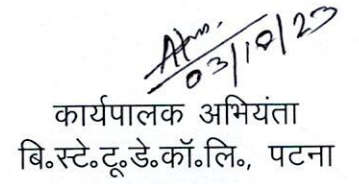 03/10/23
कार्यपालक अभियंता
बि॰स्टे॰टू॰डे॰कॉ॰लि॰, पटना